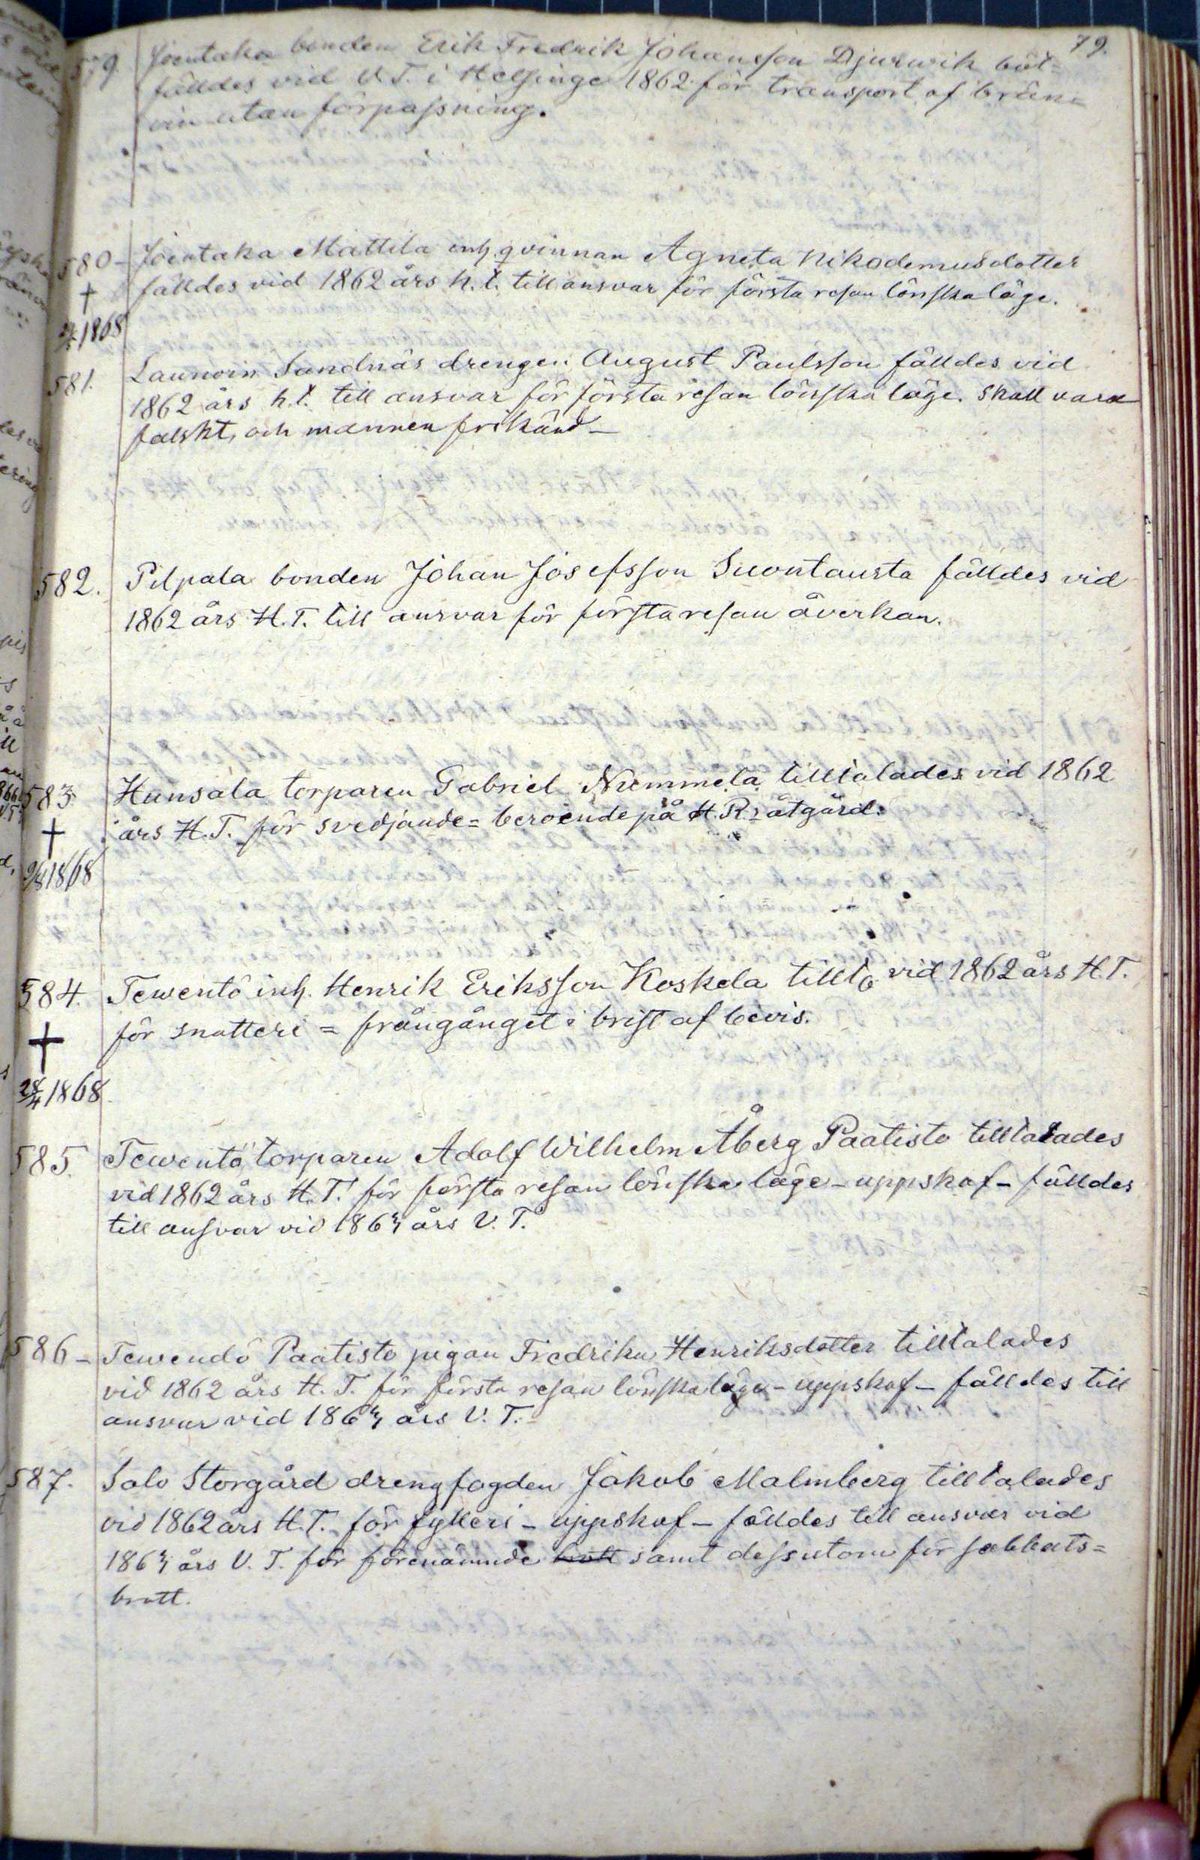 79.
579. Joentaka bonden Erik Fredrik Johansson Djurwik böt-
fälldes vid V.T. i Helsinge 1862 för transport af brän-
vin utan förpassning.
580 - Joentaka Mattila inh. qvinnan Agneta Nikodemusdotter
† fälldes vid 1862 års h.t. till ansvar för första resan lönskaläge.
1868
581. Launoin Sandnäs drengen August Paulsson fälldes vid
1862 års h.t. till ansvar för första resan lönska läge. skall vara
falskt, och mannen frikänd -
582. Pilpala bonden Johan Josefsson Suontausta fälldes vid
1862 års H.T. till ansvar för första resan åverkan.
583 Hunsala torparen Gabriel Nummela tilltalades vid 1862
† års H.T. för svedjande = beroende på H.R:s åtgärd.
1868
584. Tewentö inh. Henrik Eriksson Koskela tillt. vid 1862 års H.T.
† för snatteri = frångånget i brist af bevis.
28/4 1868
585. Tewentö torparen Adolf Wilhelm Åberg Paatisto tilltalades
vid 1862 års H.T. för första resan lönska läge - uppskof - fälldes
till ansvar vid 1863 års V.T.
586 - Tewendö Paatisto pigan Fredrika Henriksdotter tilltalades
vid 1862 års H.T. för första resan lönskaläge - uppskof - fälldes till
ansvar vid 1863 års V.T.
587. Salo Storgård drengfogden Jakob Malmberg tilltalades
vid 1862 års H.T. för fylleri - uppskof - fälldes till ansvar vid
1863 års V.T. för förenämnde brott samt dessutom för sabbats=
brott.